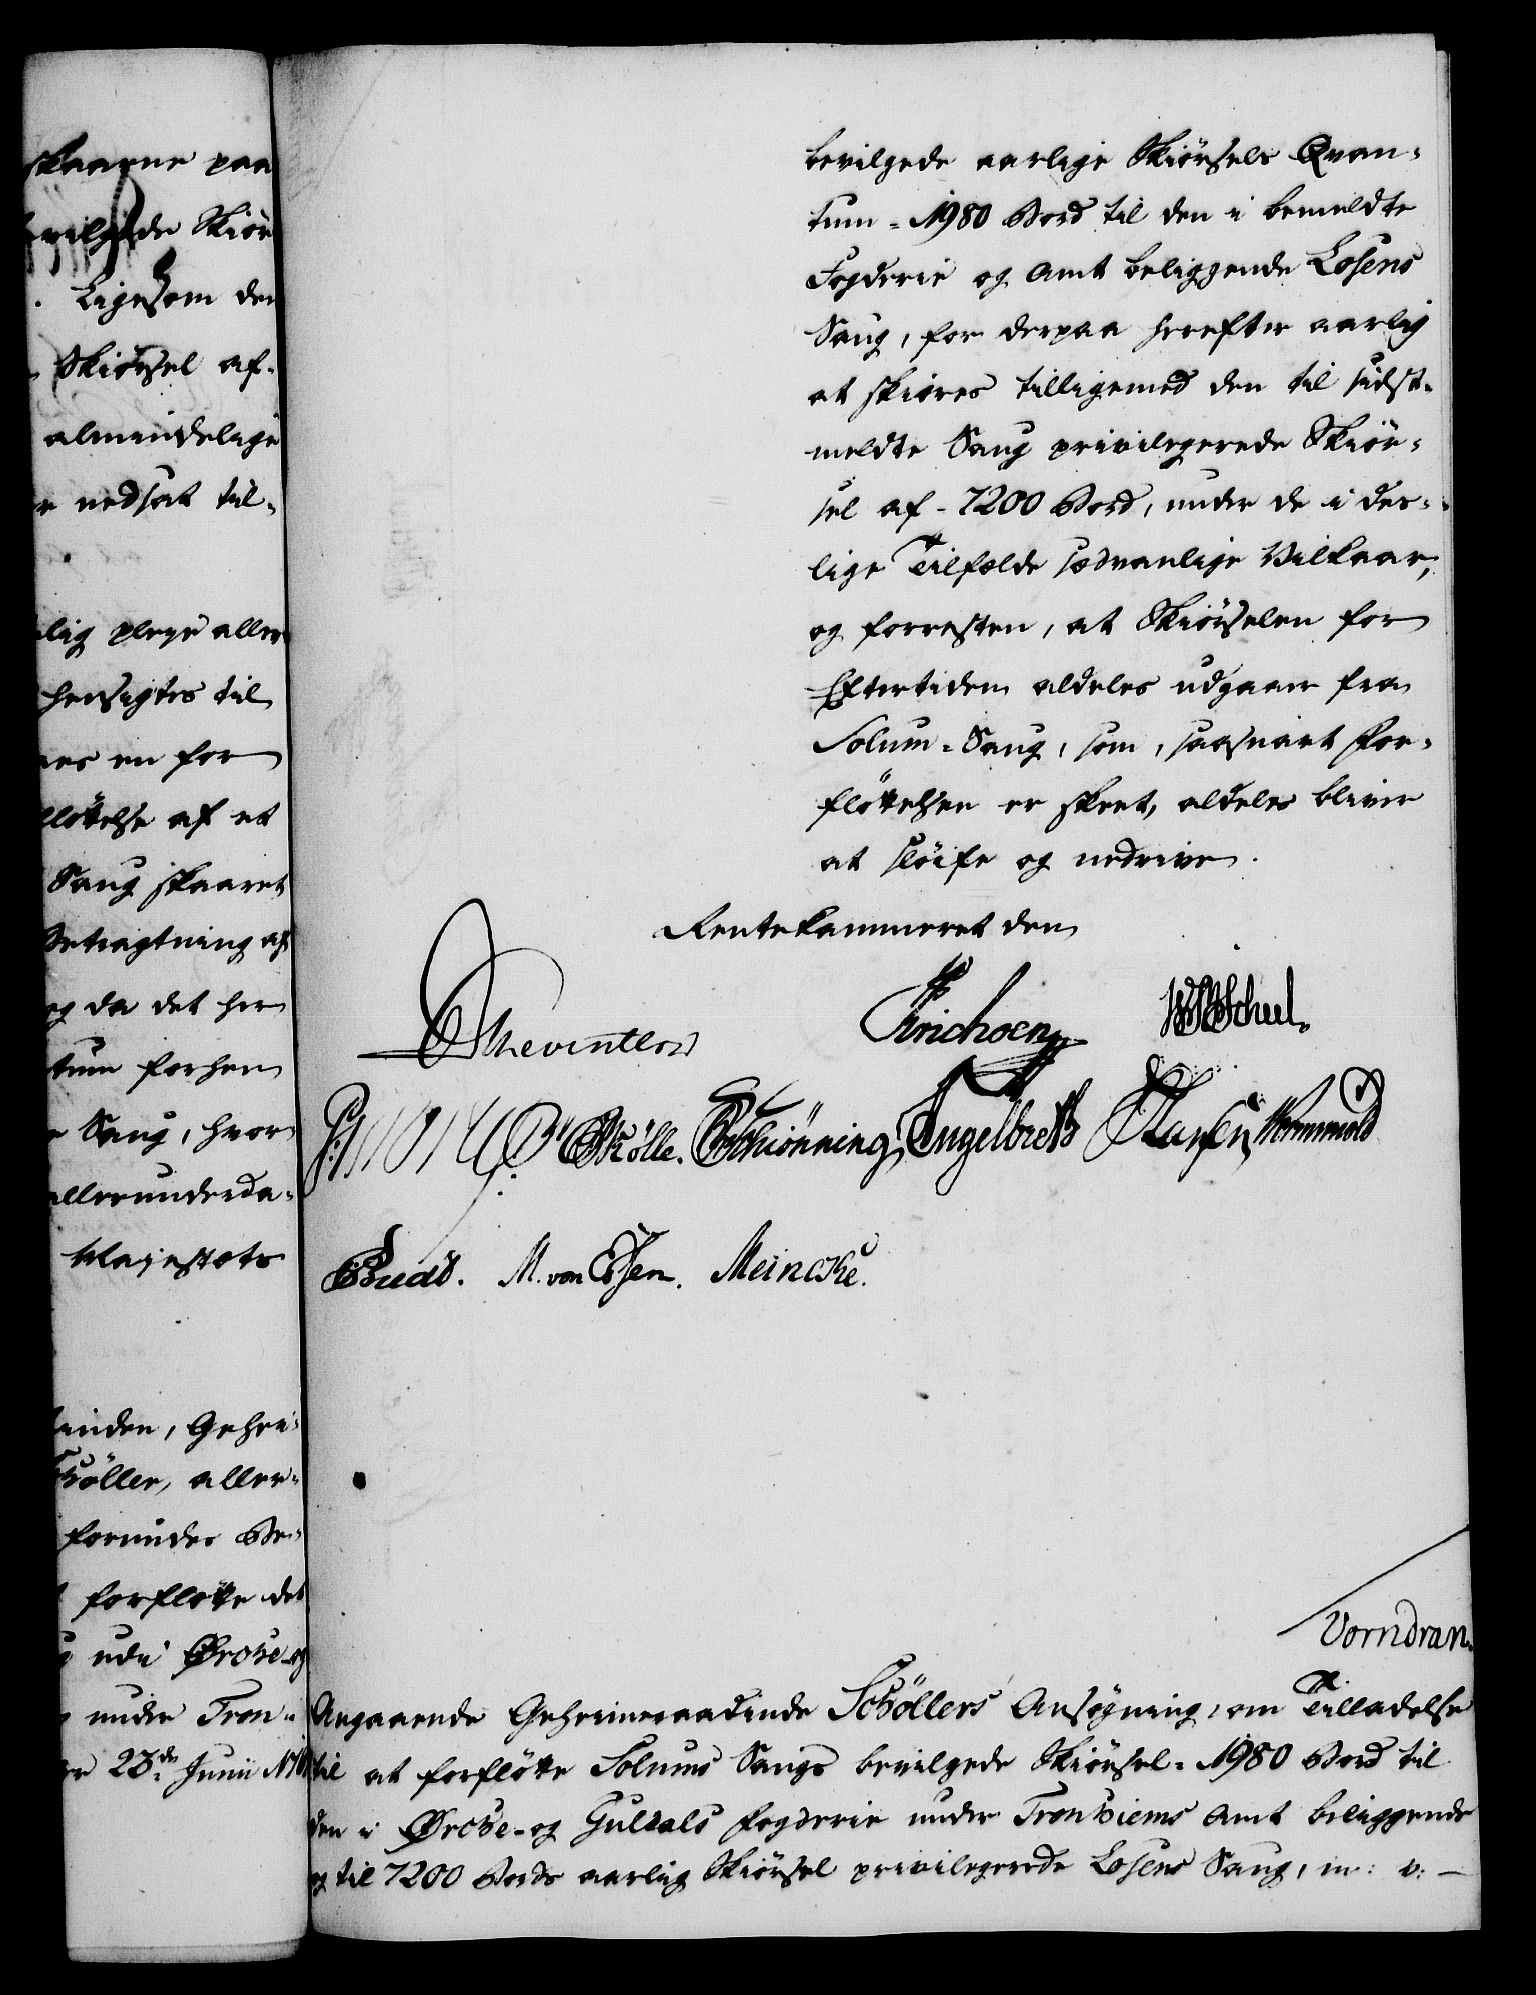 skaarne paa
bevilgede Skiør
. Ligesom den
Skiørsel af-
almindelige
nedsat til-
pleye aller
hensigtes til
en for
fløttelse af et
Saug skaaret
Betragtning af
og da det her
tum forhen
Saug, hvor-
allerunderda-
Majestæts
inden, Gehei-
Schøller, aller-
formides Be-
forfløtte det
udi Ørcke- og
under Tron-
23de Junii
bevilgede aarlige Skiørsels Qvan-
tum = 1980 Bord til den i bemeldte
Fogderie og Amt beliggende Losens
Saug, for derpaa herefter aarlig
at skiæres tilligemed den til sidst-
meldte Saug privilegerede Skiør-
sel af - 7200 Bord, under de i des-
lige Tilfælde sædvanlige Vilkaar,
og forresten, at Skiørselen for
Eftertiden aldeles udgaaer fra
Solum-Saug, som, saasnart For-
fløttelsen er skeet, aldeles bliver
at sløife og nedrive.
Rentekammeret den
Reventlow Krichsen Scheel.
Møller. Schiønning Engelbreth Hansen Wormskiold
Budtz. M. von Essen. Meincke.
Vorndran.
Angaaende Geheimeraadinde Schøllers Ansøgning, om Tilladelse
til at forfløtte Solums Saugs bevilgede Skiørsel = 1980 Bord til
den i Ørcke- og Guldals Fogderie under Trondhiems Amt beliggende
og til 7200 Bords aarlig Skiørsel privilegerede Losens Saug, m: v: —